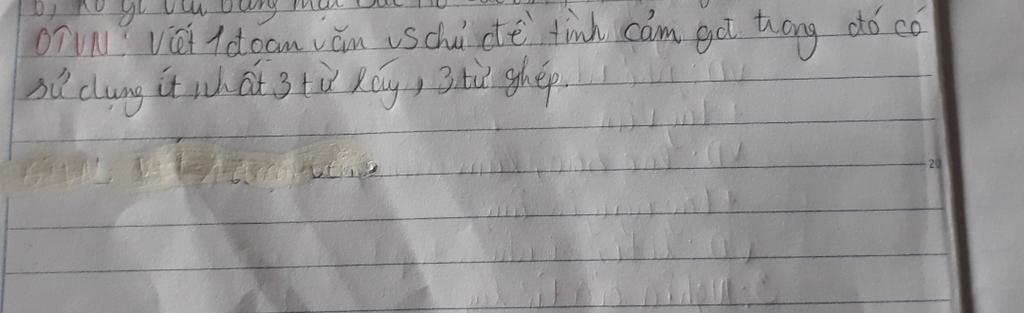 b, Ko gì
OTVN: Viết 1 đoạn văn vs chủ đề tình cảm gđ trong đó có
sử dụng ít nhất 3 từ láy, 3 từ ghép.
20